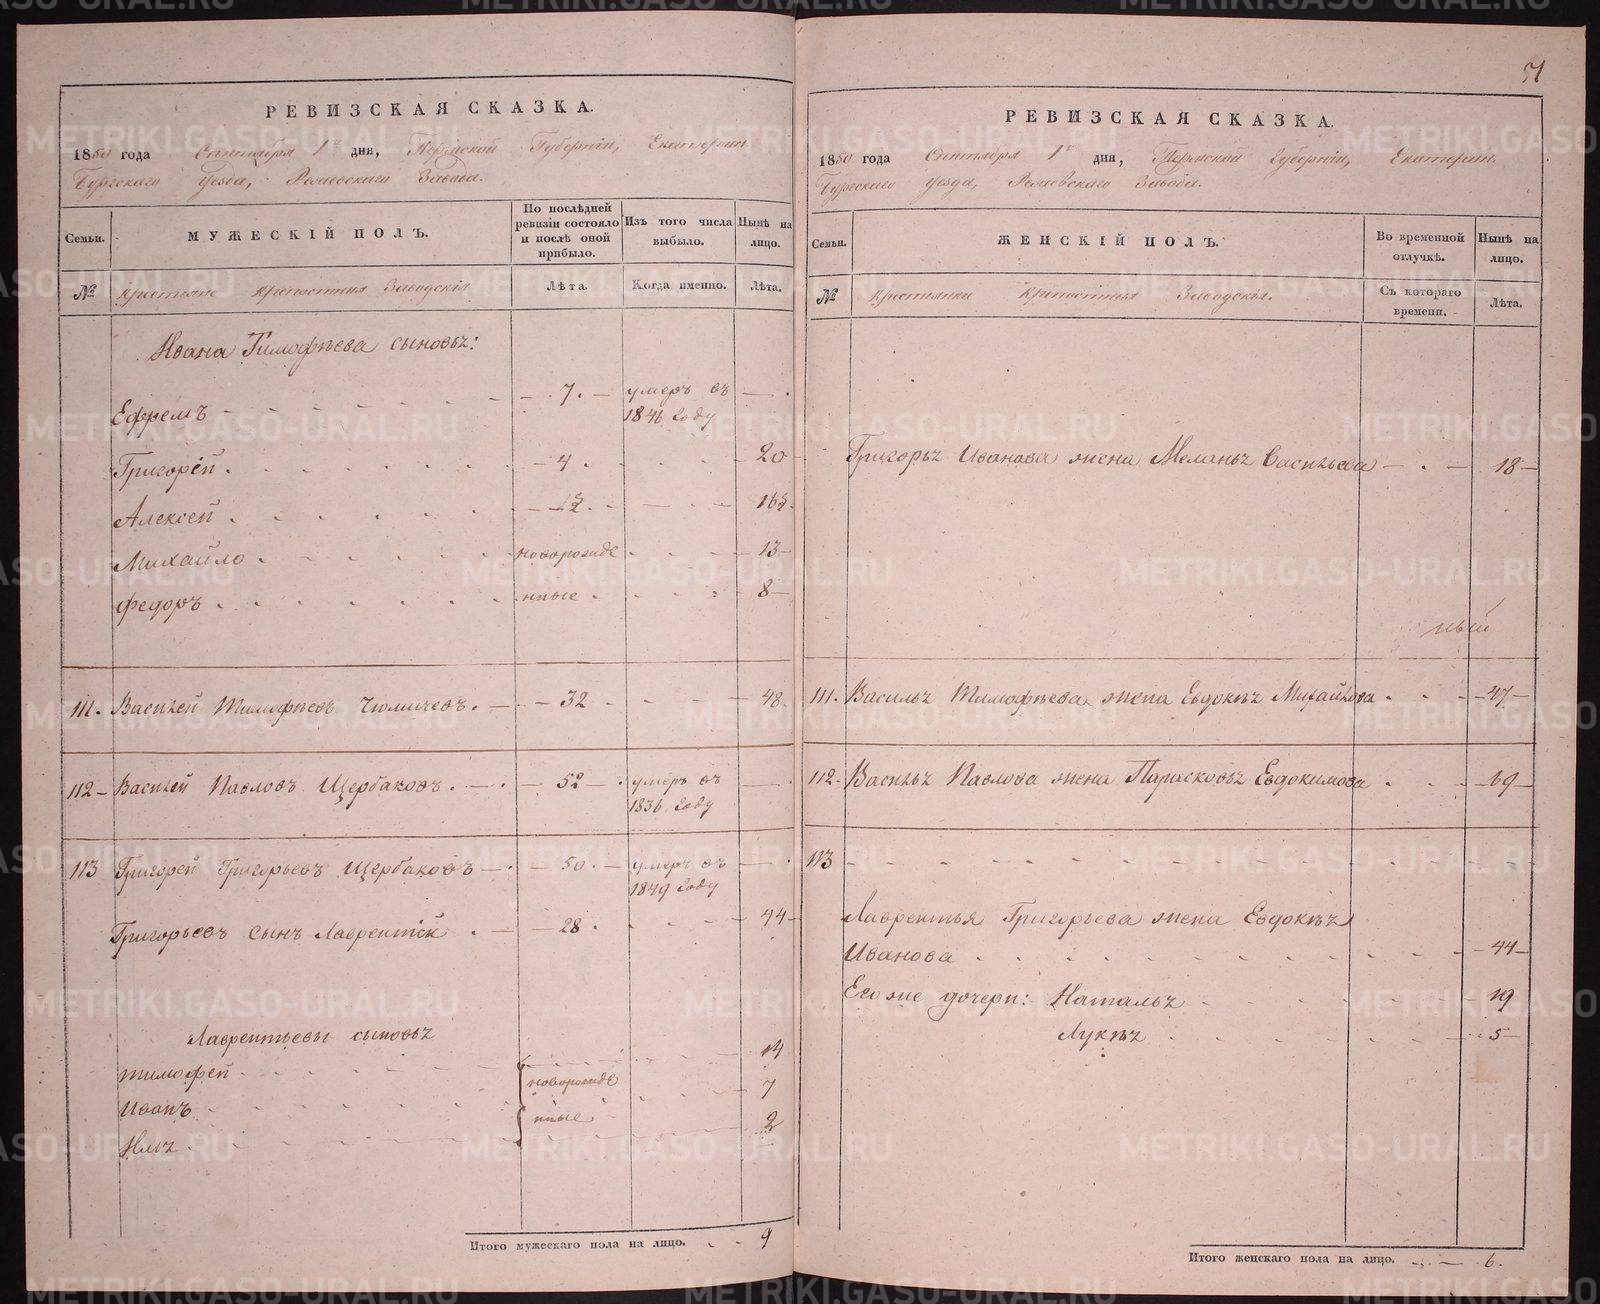 РЕВИЗСКАЯ СКАЗКА.
1850 года Сентября 1го дня, Пермской Губерніи, Екатерин
бургскаго уезда, Режевскаго Завода.
Семьи.
МУЖЕСКІЙ ПОЛЪ.
По послѣдней ревизіи состояло и послѣ оной прибыло.
Изъ того числа выбыло.
Нынѣ на лицо.
№ Крестьяне крепостныя Заводскія
Лѣта.
Когда именно.
Лѣта.
Ивана Тимофѣева сыновья:
Ефремъ - 7. - умеръ въ 1846 году - .
Григорей - 4 . 20
Алексей
Михайло новорожде 13
Федоръ нные 8
111. Василей Тимофѣевъ - 32 48.
112 - Василей Павловъ Щербаковъ - 52 - умеръ въ 1836 году -
113 Григорей Григорьевъ Щербаковъ - 50. - умеръ въ 1849 году - .
Григорьевъ сынъ Лаврентій - 28 44
Лаврентьевы сыновья
Тимофей новорожде 14
Иванъ нные 7
Илья 2
Итого мужескаго пола на лицо. 9
51
РЕВИЗСКАЯ СКАЗКА.
1850 года Сентября 1го дня, Пермской Губерніи, Екатерин
бургскаго уезда, Режевскаго Завода.
Семьи.
ЖЕНСКІЙ ПОЛЪ.
Во временной отлучкѣ.
Нынѣ на лицо.
№ Крестьянки крепостныя Заводскія.
Съ котораго времени.
Лѣта.
Григорья Иванова жена Меланья Васильева - . - 18
111. Василья Тимофѣева жена Евдокѣя Михайлова 47
112. Василья Павлова жена Парасковья Евдокимова 69
113
Лаврентья Григорьева жена Евдокѣя
Иванова 44
Его же дочери: Наталья 19
Лукѣя 5
Итого женскаго пола на лицо. 6.
METRIKI.GASO-URAL.RU